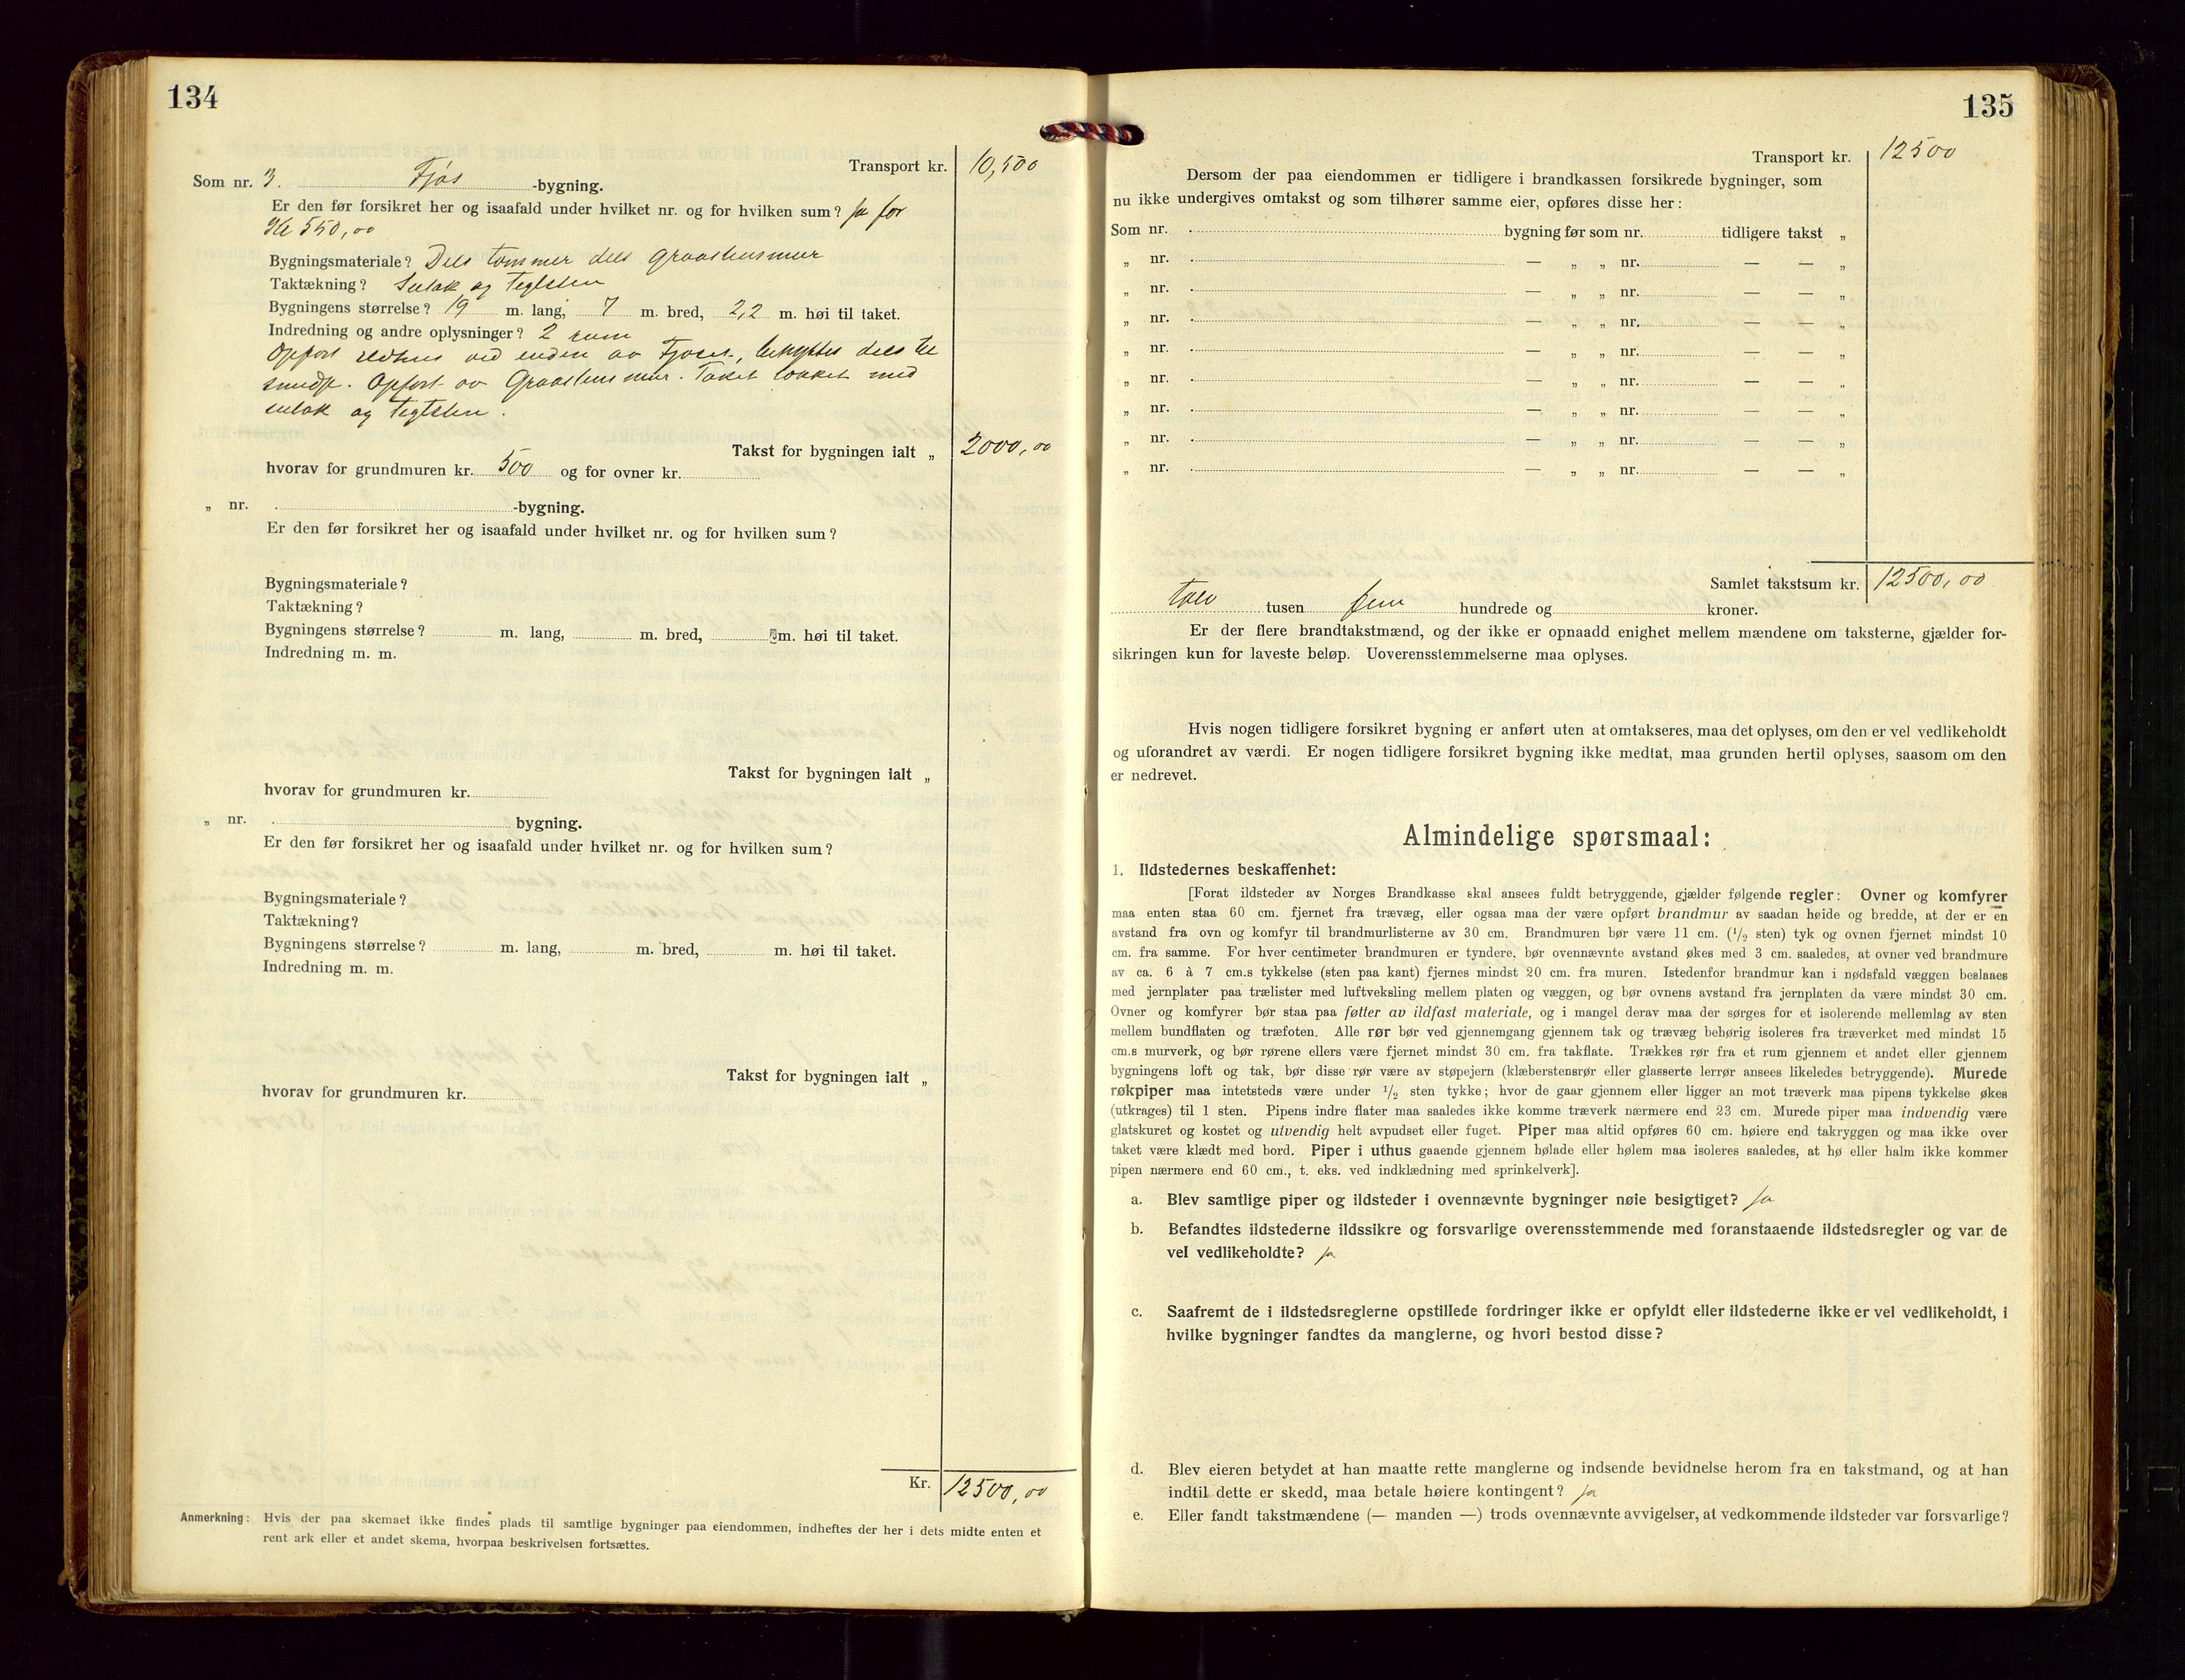 134
Transport kr. 10,500
Som nr. 3. Fjøs -bygning.
Er den før forsikret her og isaafald under hvilket nr. og for hvilken sum? Ja for
Kr 550,00
Bygningsmateriale? Dels tømmer dels graastensmur
Taktækning? Sutak og teglsten
Bygningens størrelse? 19 m. lang, 7 m. bred, 2,2 m. høi til taket.
Indredning og andre oplysninger? 2 rum
Opført ildhus ved enden av Fjøset, benyttes dels til
smidje. Opført av Graastensmur. Taket tækket med
sutak og teglsten.
Takst for bygningen ialt „ 2000,00
hvorav for grundmuren kr. 500 og for ovner kr.
„ nr. -bygning.
Er den før forsikret her og isaafald under hvilket nr. og for hvilken sum?
Bygningsmateriale?
Taktækning?
Bygningens størrelse? m. lang, m. bred, m. høi til taket.
Indredning m. m.
Takst for bygningen ialt „
hvorav for grundmuren kr.
„ nr. bygning.
Er den før forsikret her og isaafald under hvilket nr. og for hvilken sum?
Bygningsmateriale?
Taktækning?
Bygningens størrelse? m. lang, m. bred, m. høi til taket.
Indredning m. m.
Takst for bygningen ialt „
hvorav for grundmuren kr.
Kr. 12500,00
Anmerkning: Hvis der paa skemaet ikke findes plads til samtlige bygninger paa eiendommen, indheftes der her i dets midte enten et
rent ark eller et andet skema, hvorpaa beskrivelsen fortsættes.
135
Transport kr. 12500
Dersom der paa eiendommen er tidligere i brandkassen forsikrede bygninger, som
nu ikke undergives omtakst og som tilhører samme eier, opføres disse her:
Som nr. bygning før som nr. tidligere takst „
„ nr. — „ „ nr. — — „
„ nr. — „ „ nr. — — „
„ nr. — „ „ nr. — — „
„ nr. — „ „ nr. — — „
„ nr. — „ „ nr. — — „
„ nr. — „ „ nr. — — „
„ nr. — „ „ nr. — — „
„ nr. — „ „ nr. — — „
Samlet takstsum kr. 12500,00
tolv tusen fem hundrede og kroner.
Er der flere brandtakstmænd, og der ikke er opnaadd enighet mellem mændene om taksterne, gjælder for-
sikringen kun for laveste beløp. Uoverensstemmelserne maa oplyses.
Hvis nogen tidligere forsikret bygning er anført uten at omtakseres, maa det oplyses, om den er vel vedlikeholdt
og uforandret av værdi. Er nogen tidligere forsikret bygning ikke medtat, maa grunden hertil oplyses, saasom om den
er nedrevet.
Almindelige spørsmaal:
1. Ildstedernes beskaffenhet:
[Forat ildsteder av Norges Brandkasse skal ansees fuldt betryggende, gjælder følgende regler: Ovner og komfyrer
maa enten staa 60 cm. fjernet fra trævæg, eller ogsaa maa der være opført brandmur av saadan høide og bredde, at der er en
avstand fra ovn og komfyr til brandmurlisterne av 30 cm. Brandmuren bør være 11 cm. (1/2 sten) tyk og ovnen fjernet mindst 10
cm. fra samme. For hver centimeter brandmuren er tyndere, bør ovennævnte avstand økes med 3 cm. saaledes, at ovner ved brandmure
av ca. 6 à 7 cm.s tykkelse (sten paa kant) fjernes mindst 20 cm. fra muren. Istedenfor brandmur kan i nødsfald væggen beslaaes
med jernplater paa trælister med luftveksling mellem platen og væggen, og bør ovnens avstand fra jernplaten da være mindst 30 cm.
Ovner og komfyrer bør staa paa føtter av ildfast materiale, og i mangel derav maa der sørges for et isolerende mellemlag av sten
mellem bundflaten og træfoten. Alle rør bør ved gjennemgang gjennem tak og trævæg behørig isoleres fra træverket med mindst 15
cm.s murverk, og bør rørene ellers være fjernet mindst 30 cm. fra takflate. Trækkes rør fra et rum gjennem et andet eller gjennem
bygningens loft og tak, bør disse rør være av støpejern (klæberstensrør eller glasserte lerrør ansees likeledes betryggende). Murede
røkpiper maa intetsteds være under 1/2 sten tykke; hvor de gaar gjennem eller ligger an mot træverk maa pipens tykkelse økes
(utkrages) til 1 sten. Pipens indre flater maa saaledes ikke komme træverk nærmere end 23 cm. Murede piper maa indvendig være
glatskuret og kostet og utvendig helt avpudset eller fuget. Piper maa altid opføres 60 cm. høiere end takryggen og maa ikke over
taket være klædt med bord. Piper i uthus gaaende gjennem hølade eller hølem maa isoleres saaledes, at hø eller halm ikke kommer
pipen nærmere end 60 cm., t. eks. ved indklædning med sprinkelverk].
a. Blev samtlige piper og ildsteder i ovennævnte bygninger nøie besigtiget? Ja
b. Befandtes ildstederne ildssikre og forsvarlige overensstemmende med foranstaaende ildstedsregler og var de
vel vedlikeholdte? ja
c. Saafremt de i ildstedsreglerne opstillede fordringer ikke er opfyldt eller ildstederne ikke er vel vedlikeholdt, i
hvilke bygninger fandtes da manglerne, og hvori bestod disse?
d. Blev eieren betydet at han maatte rette manglerne og indsende bevidnelse herom fra en takstmand, og at han
indtil dette er skedd, maa betale høiere kontingent? ja
e. Eller fandt takstmændene (— manden —) trods ovennævnte avvigelser, at vedkommende ildsteder var forsvarlige?